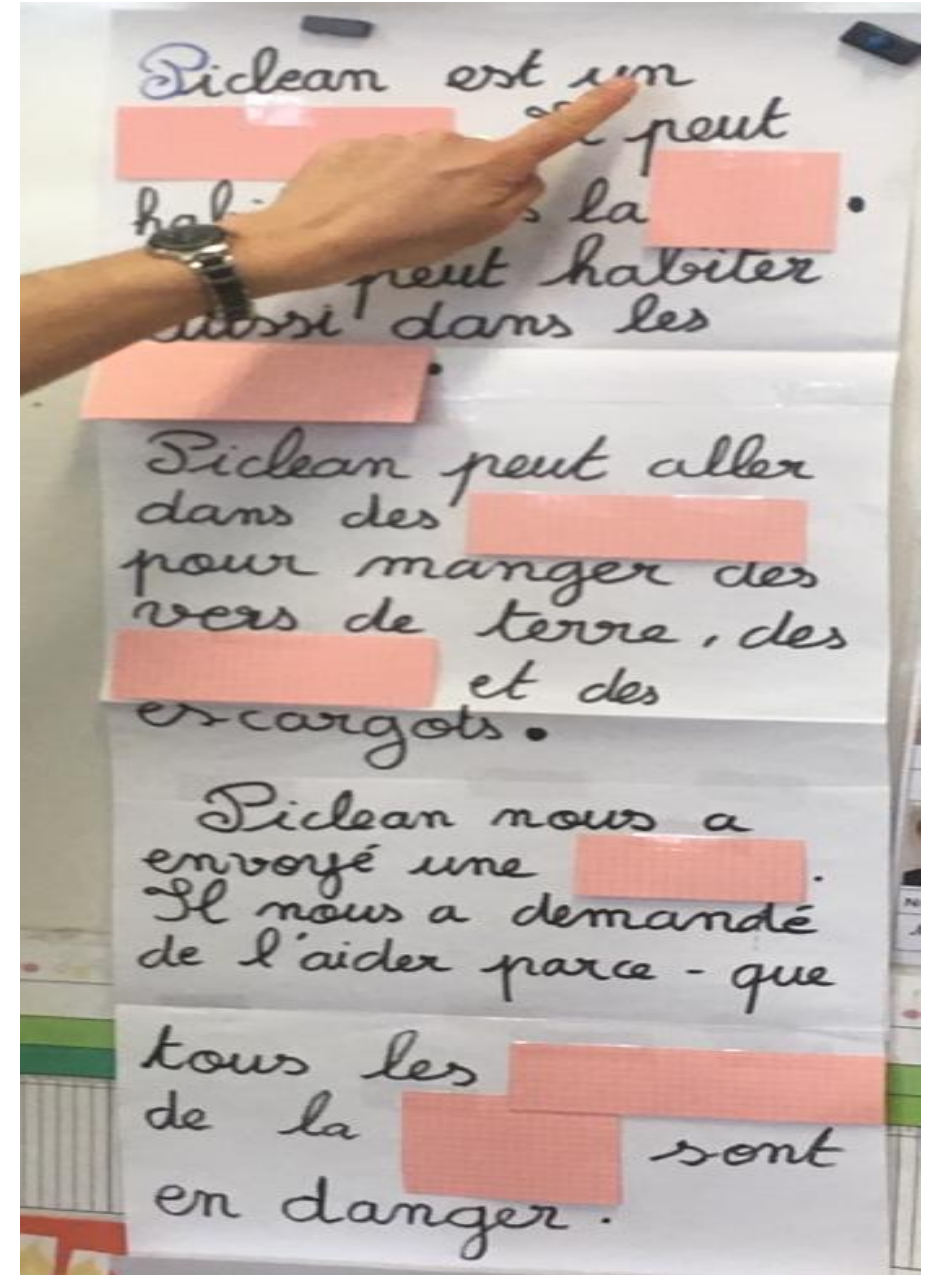 Piclean est un
peut
la .
peut habiter
aussi dans les
.
Piclean peut aller
dans des
pour manger des
vers de terre, des
et des
escargots.
Piclean nous a
envoyé une .
Il nous a demandé
de l'aider parce-que
tous les
de la sont
en danger.